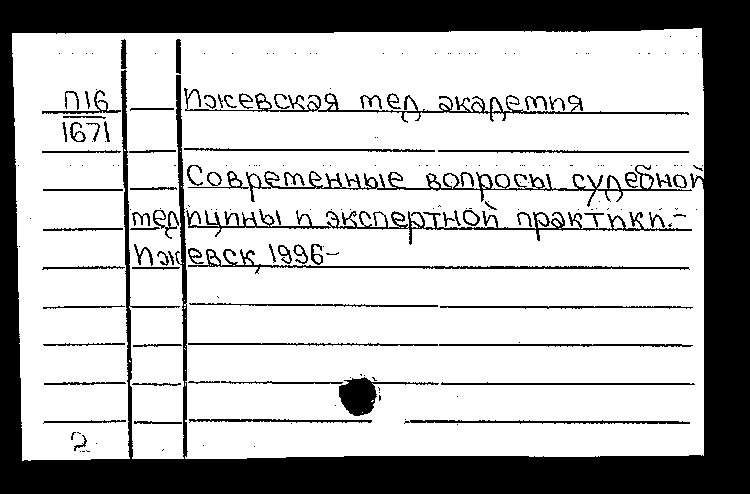 П16 Ижевская мед. академия
1671
Современные вопросы судебной
медицины и экспертной практики.-
Ижевск, 1996-
2